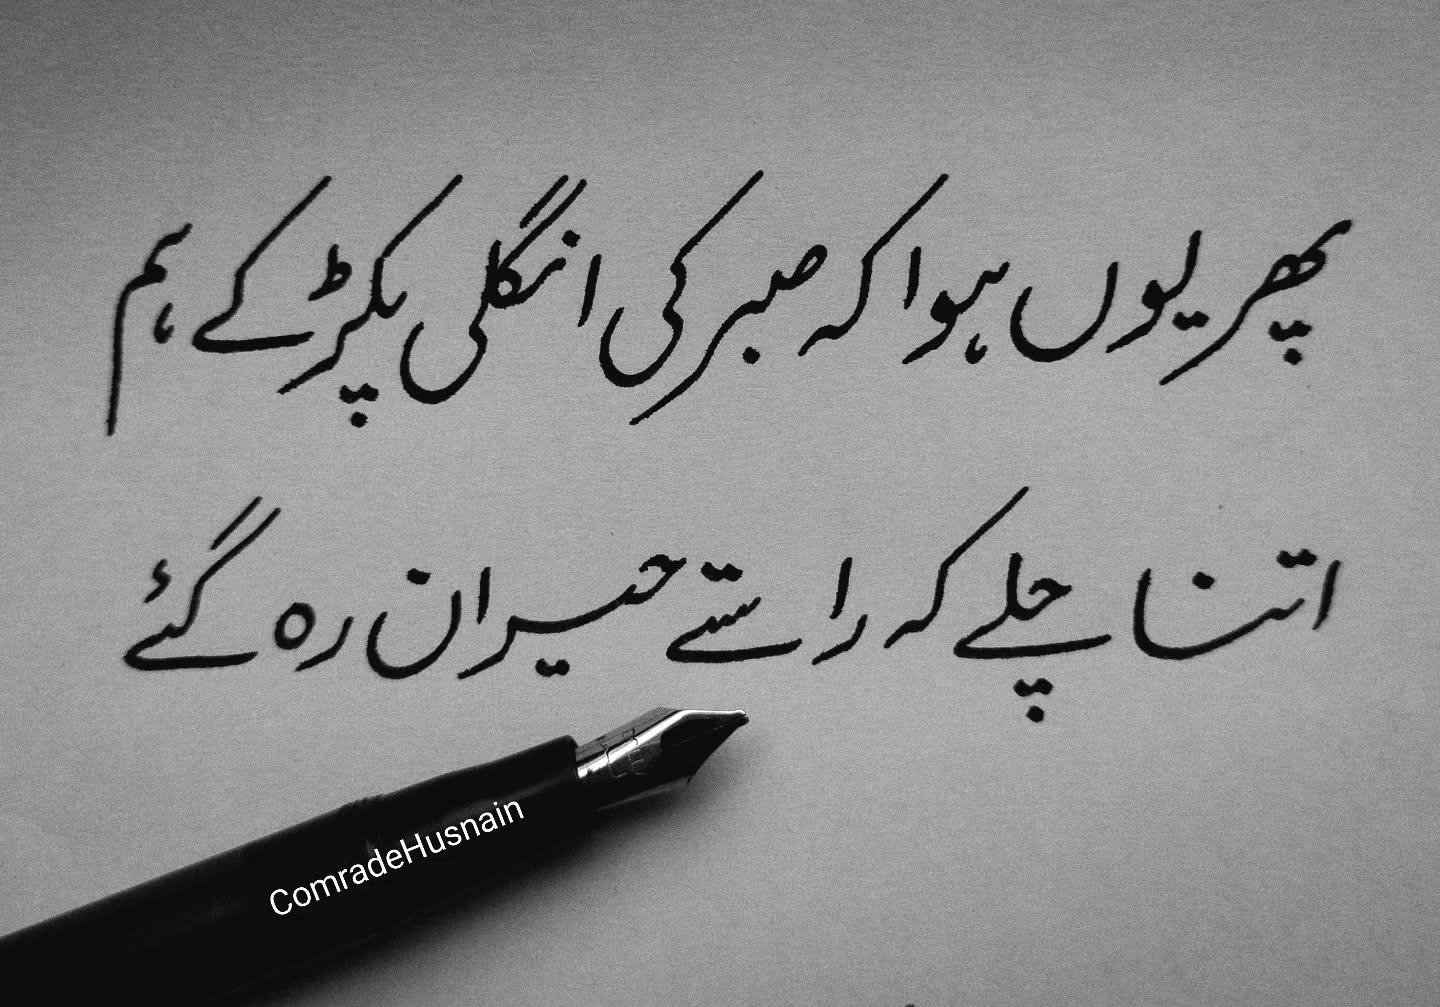 پھر یوں ہوا کہ صبر کی انگلی پکڑ کے ہم
اتنا چلے کہ راستے حیران رہ گئے
ComradeHusnain